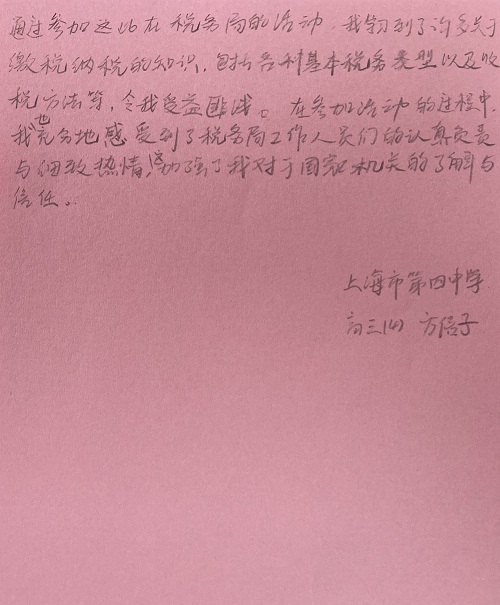 通过参加这次在税务局的活动,我学习到了许多关于
缴税纳税的知识,包括各种基本税务类型以及收
税方法等,令我受益匪浅。在参加活动的过程中,
我也充分地感受到了税务局工作人员们的认真负责
与细致热情,这加强了我对于国家机关的了解与
信任。
上海市第四中学
高三(4) 方信子